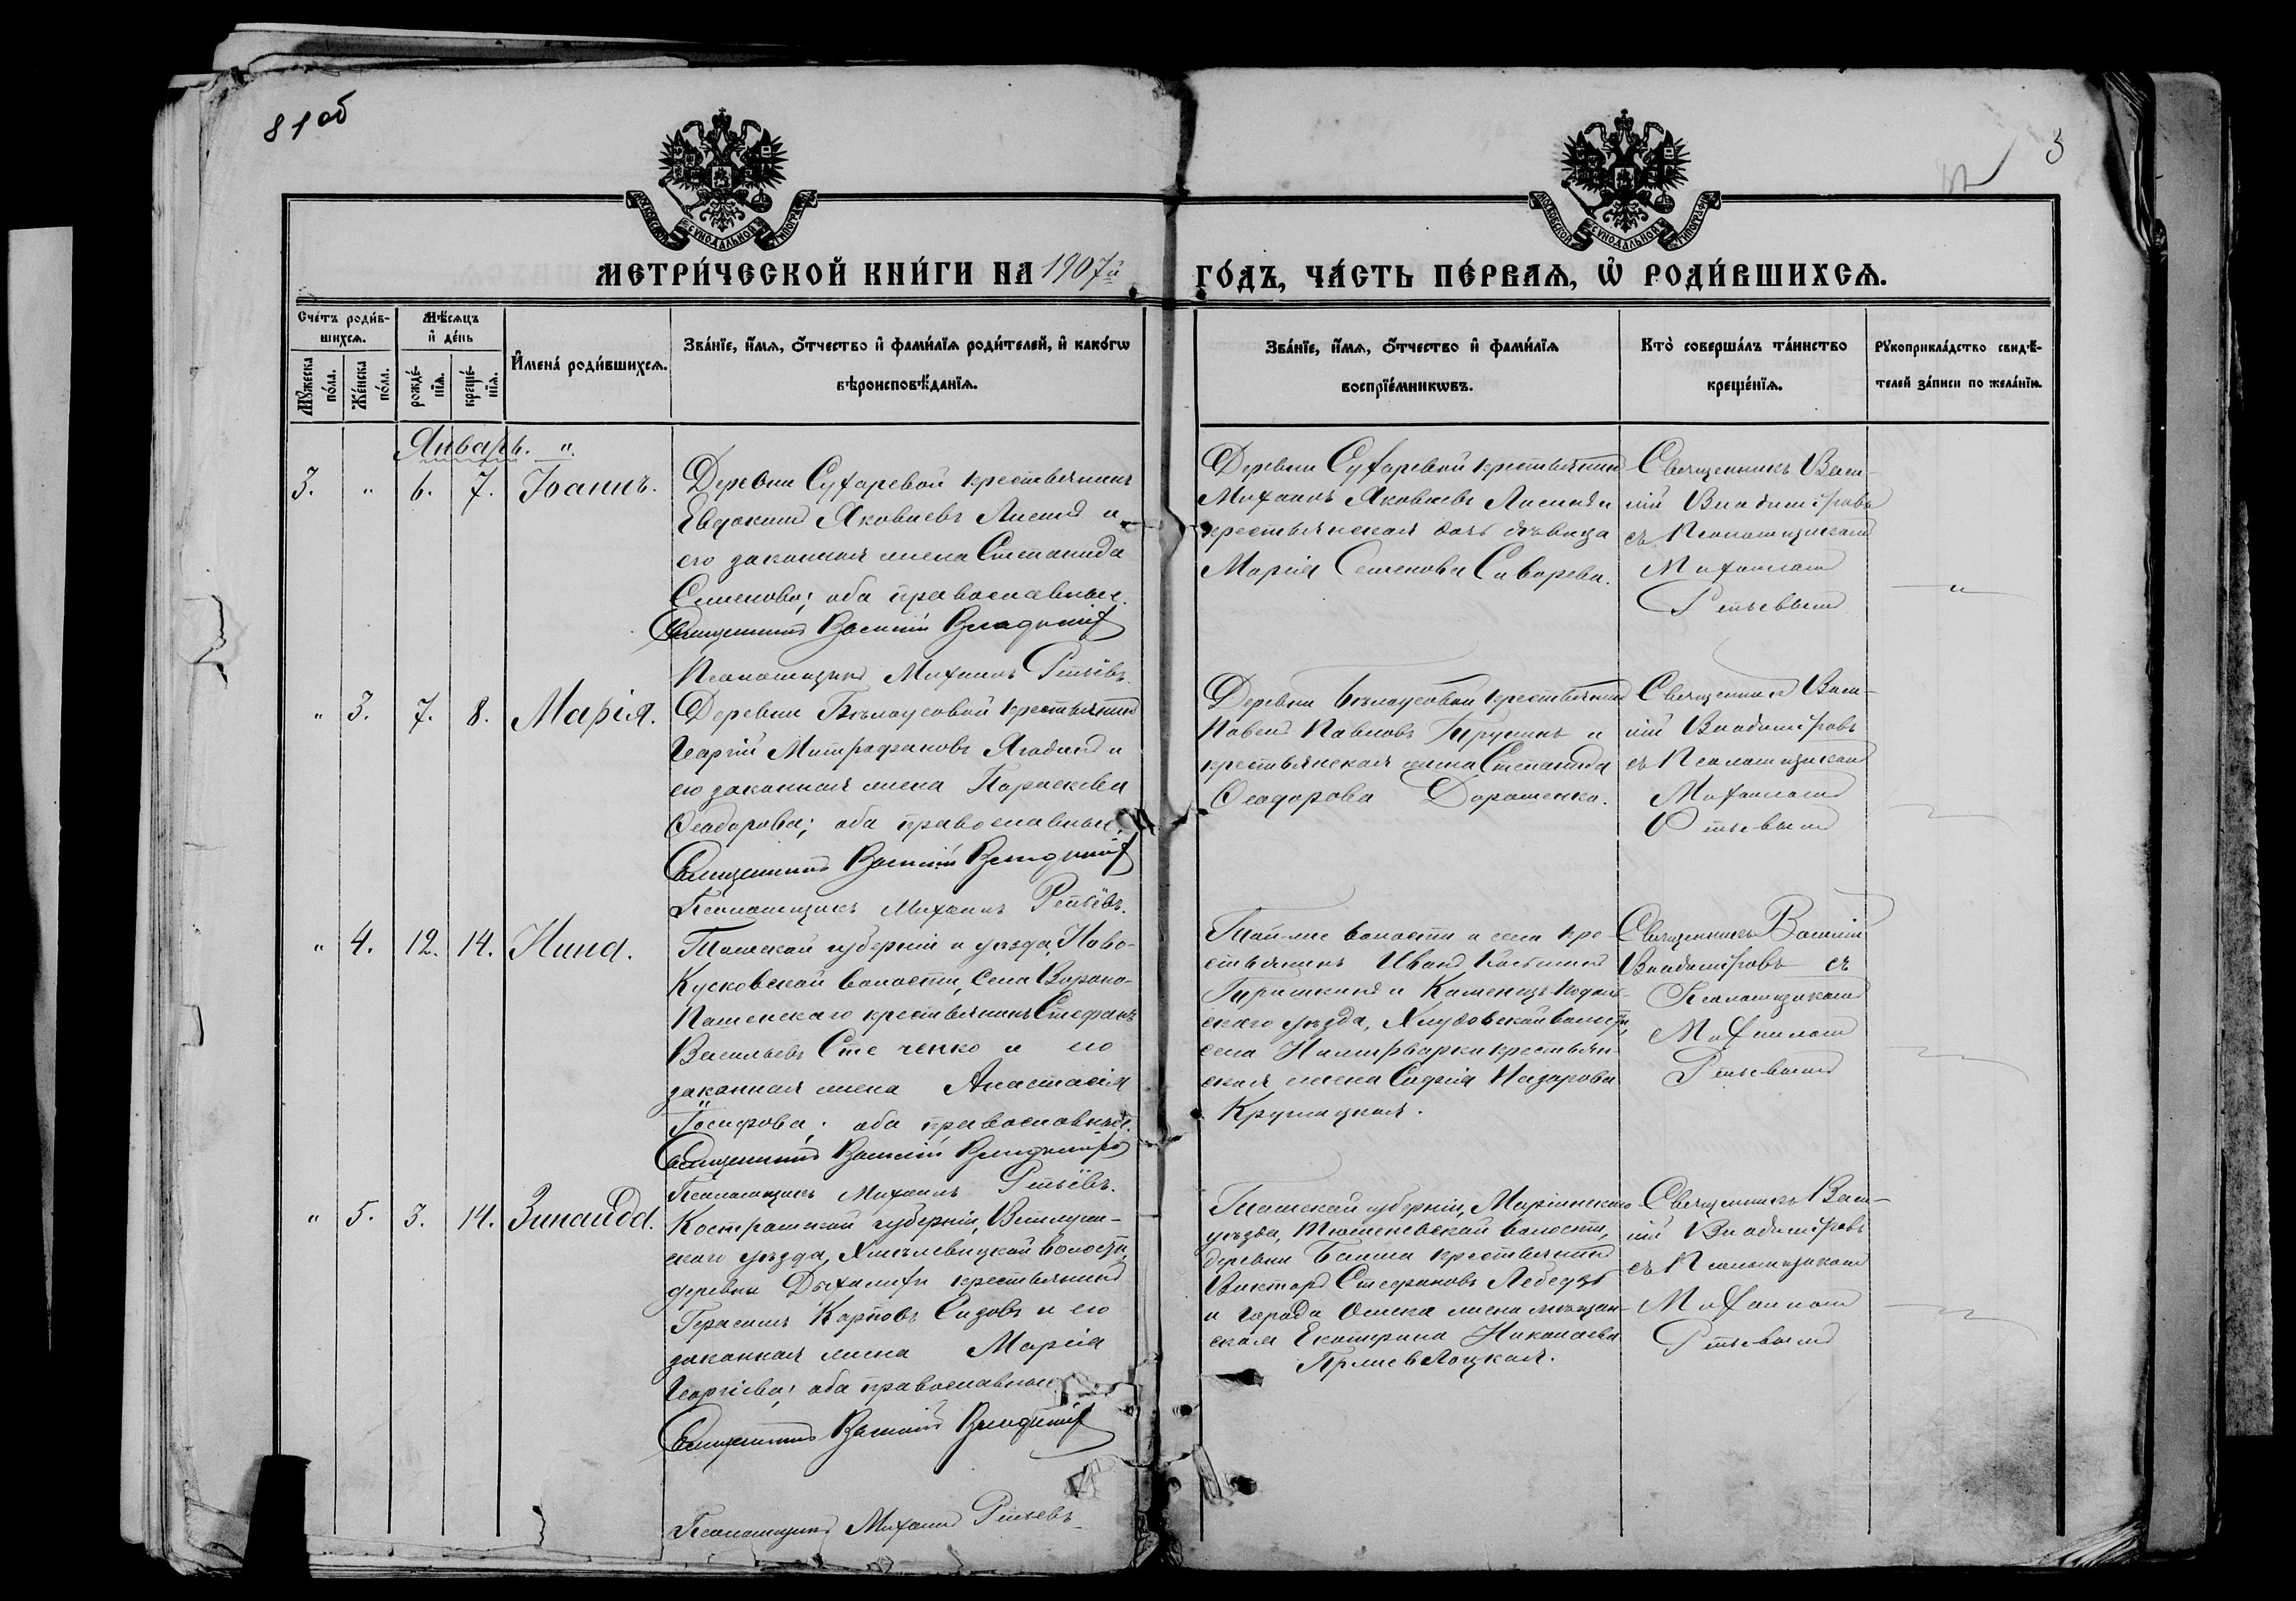 81об
3
МОСКОВСКОЙ СѴНОДАЛЬНОЙ ТИПОГРАФІИ
МОСКОВСКОЙ СѴНОДАЛЬНОЙ ТИПОГРАФІИ
МЕТРИ́ЧЕСКОЙ КНИ́ГИ НА 1907й ГО́ДЪ, ЧА́СТЬ ПЕ́РВАѦ, Ѿ РОДИ́ВШИХСѦ.
Сче́тъ роди́в-
шихсѧ.
Мꙋ́жеска
по́ла.
Же́нска
по́ла.
Мѣ́сѧцъ
и҆ де́нь
рожде́-
нїѧ.
креще́-
нїѧ.
И҆мена̀ роди́вшихсѧ.
Зва́нїе, и҆́мѧ, ѻ҆́тчество и҆ фами́лїѧ роди́телей, и҆ како́гѡ
вѣроисповѣ́данїѧ.
Зва́нїе, и҆́мѧ, ѻ҆́тчество и҆ фами́лїѧ
воспрїе́мникѡвъ.
Кто̀ соверша́лъ та́инство
креще́нїѧ.
Рꙋкоприкла́дство свидѣ́-
телей за́писи по жела́нїю.
Январь. "
3. " 6. 7. Іоаннъ.
Деревни Сухаревой крестьянинъ
Евдокимъ Яковлевъ и
его законная жена Степанида
Семенова; оба православные.
Священникъ Василій Владиміровъ
Псаломщикъ Михаилъ Репьевъ.
Деревни Сухаревой крестьянинъ
Михаилъ Яковлевъ и
крестьянская дочь дѣвица
Марія Семенова
Священникъ Васи-
лій Владиміровъ
съ Псаломщикомъ
Михаиломъ
Репьевымъ
"
" 3. 7. 8. Марія.
Деревни Бѣлоусовой крестьянинъ
Георгій Митрофановъ Ягодинъ и
его законная жена Параскева
Ѳеодорова; оба православные.
Священникъ Василій Владиміровъ
Псаломщикъ Михаилъ Репьевъ.
Деревни Бѣлоусовой крестьянинъ
Павелъ Павловъ и
крестьянская жена Степанида
Ѳеодорова Дорошенко.
Священникъ Васи-
лій Владиміровъ
съ Псаломщикомъ
Михаиломъ
Репьевымъ
" 4. 12. 14. Нина.
Томской губерніи и уѣзда, Ново-
Кусковской волости, села Вороно-
Пашенскаго крестьянинъ Стефанъ
Васильевъ и его
законная жена Анастасія
Іосифова; оба православные.
Священникъ Василій Владиміровъ
Псаломщикъ Михаилъ Репьевъ.
волости и села кре-
стьянинъ Иванъ
и Каменецъ-Подоль-
скаго уѣзда, волости,
села крестьян-
ская жена Софія Назарова
Священникъ Василій
Владиміровъ съ
Псаломщикомъ
Михаиломъ
Репьевымъ
" 5. 3. 14. Зинаида.
Костромской губерніи, Ветлуж-
скаго уѣзда, Хмѣлевицкой волости,
деревни крестьянинъ
Герасимъ Карповъ Сизовъ и его
законная жена Марія
Георгіева; оба православные
Священникъ Василій Владиміровъ
Псаломщикъ Михаилъ Репьевъ
Томской губерніи, Маріинскаго
уѣзда, Тюменевской волости,
деревни крестьянинъ
Викторъ Стефановъ
и города Омска жена мѣщан-
ская Екатерина Николаева
Священникъ Васи-
лій Владиміровъ
съ Псаломщикомъ
Михаиломъ
Репьевымъ